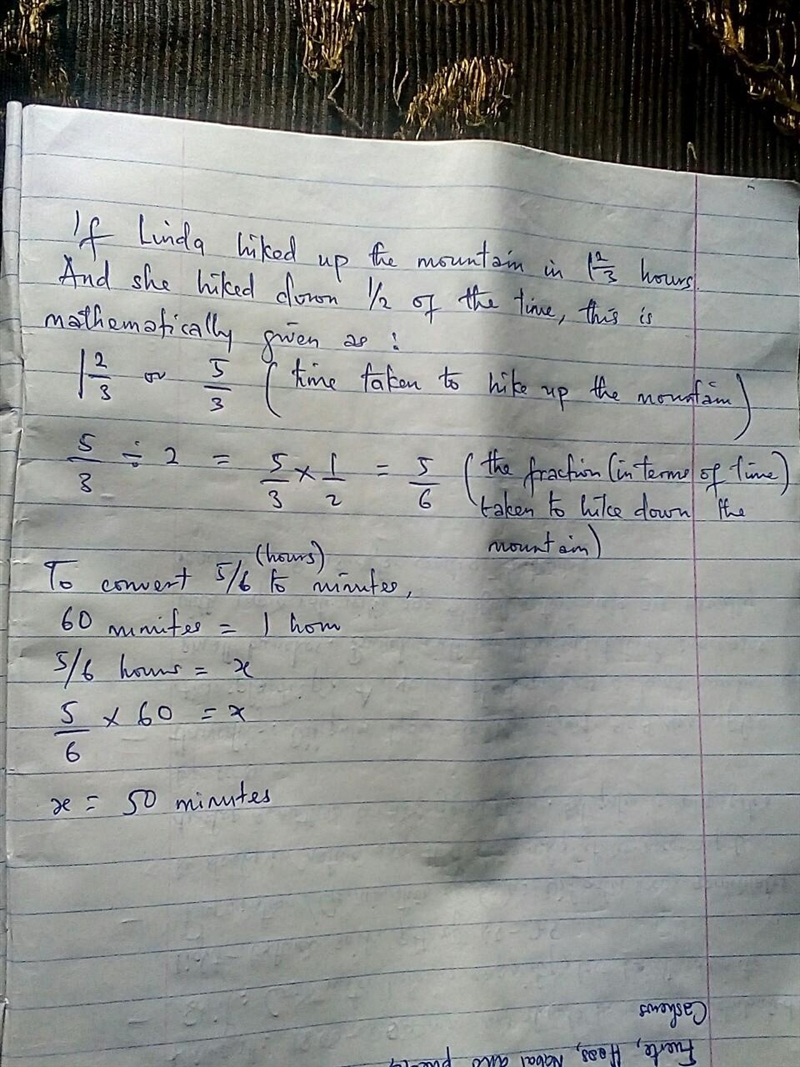 If Linda hiked up the mountain in 1 2/3 hours.
And she hiked down 1/2 of the time, this is
mathematically given as :
1 2/3 or 5/3 (time taken to hike up the mountain)
5/3 ÷ 2 = 5/3 × 1/2 = 5/6 (the fraction (in terms of time)
taken to hike down the
mountain)
To convert 5/6 (hours) to minutes,
60 minutes = 1 hour
5/6 hours = x
5/6 × 60 = x
x = 50 minutes
Cashews
Fuerte, Hass, Nabal and